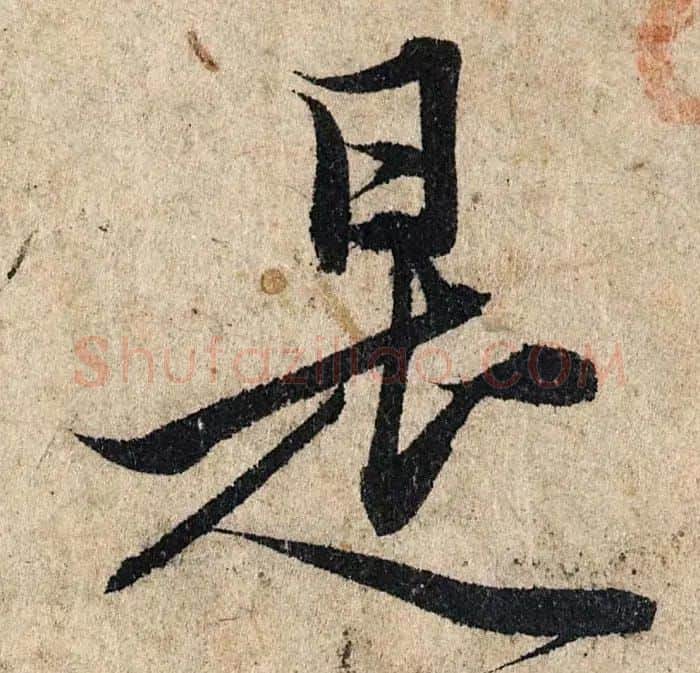 是
Shufaziliao.COM